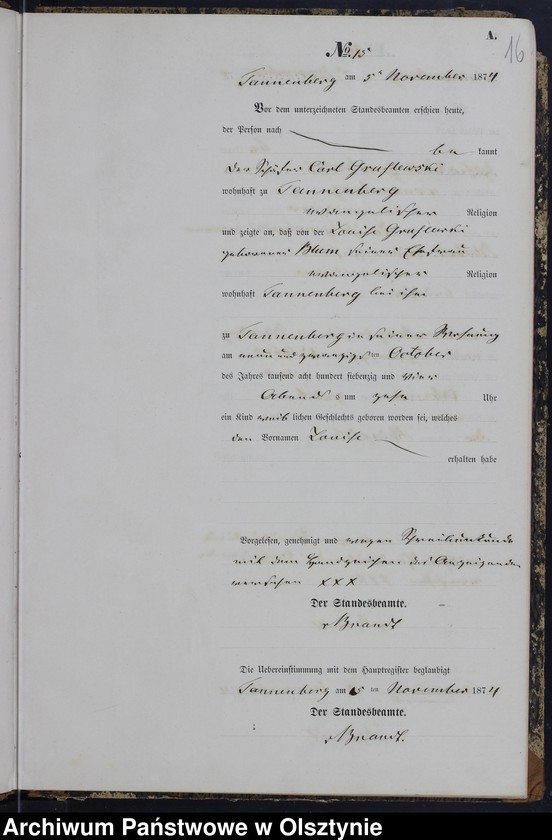 A.
16
No. 15
Tannenberg am 5n November 1874
Vor dem unterzeichneten Standesbeamten erschien heute,
der Person nach
be kannt
der Schäfer Carl Gruslewski
wohnhaft zu Tannenberg
evangelischer Religion
und zeigte an, daß von der Louise Gruslewski
geborenen Blum seiner Ehefrau
evangelischer Religion
wohnhaft Tannenberg bei ihm
zu Tannenberg in seiner Wohnung
am neun und zwanzigsten October
des Jahres tausend acht hundert siebenzig und vier
Abends um zehn Uhr
ein Kind weib lichen Geschlechts geboren worden sei, welches
den Vornamen Louise
erhalten habe
Vorgelesen, genehmigt und wegen Schreibunkunde
mit dem Handzeichen des Anzeigenden
versehen XXX
Der Standesbeamte.
Brandt
Die Uebereinstimmung mit dem Hauptregister beglaubigt
Tannenberg am 5 ten November 1874
Der Standesbeamte.
Brandt.
Archiwum Państwowe w Olsztynie